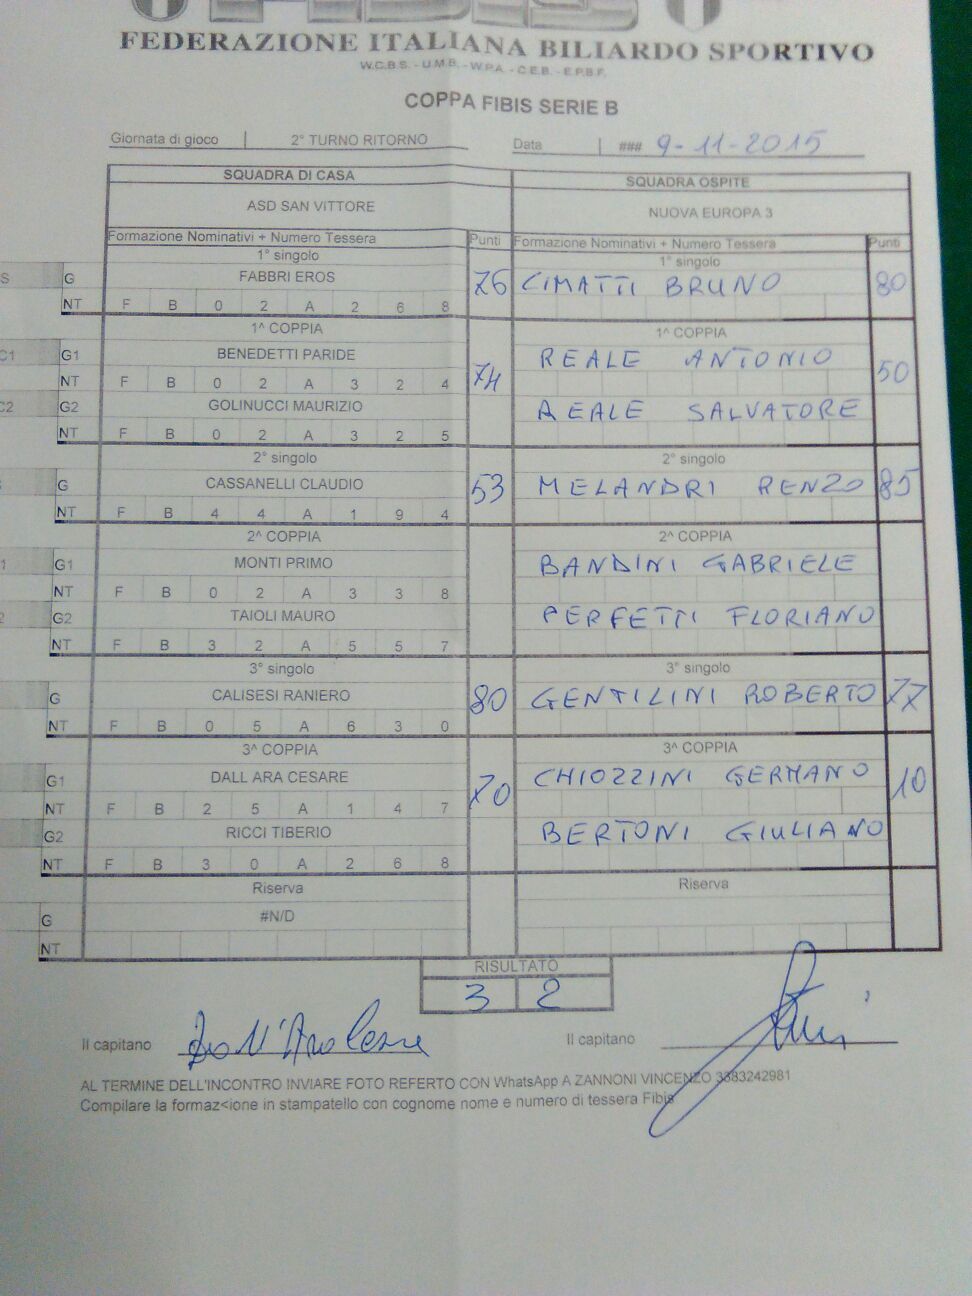 FEDERAZIONE ITALIANA BILIARDO SPORTIVO
W.C.B.S. - U.M.B. - W.P.A. - C.E.B. - E.P.B.F.
COPPA FIBIS SERIE B
Giornata di gioco 2° TURNO RITORNO Data ### 9-11-2015
SQUADRA DI CASA SQUADRA OSPITE
ASD SAN VITTORE NUOVA EUROPA 3
Formazione Nominativi + Numero Tessera Punti Formazione Nominativi + Numero Tessera Punti
1° singolo 1° singolo
S G FABBRI EROS 76 CIMATTI BRUNO 80
NT F B 0 2 A 2 6 8
1^ COPPIA 1^ COPPIA
C1 G1 BENEDETTI PARIDE REALE ANTONIO
NT F B 0 2 A 3 2 4 74 50
C2 G2 GOLINUCCI MAURIZIO REALE SALVATORE
NT F B 0 2 A 3 2 5
2° singolo 2° singolo
G CASSANELLI CLAUDIO 53 MELANDRI RENZO 85
NT F B 4 4 A 1 9 4
2^ COPPIA 2^ COPPIA
1 G1 MONTI PRIMO BANDINI GABRIELE
NT F B 0 2 A 3 3 8
2 G2 TAIOLI MAURO PERFETTI FLORIANO
NT F B 3 2 A 5 5 7
3° singolo 3° singolo
G CALISESI RANIERO 80 GENTILINI ROBERTO 77
NT F B 0 5 A 6 3 0
3^ COPPIA 3^ COPPIA
G1 DALL ARA CESARE CHIOZZINI GERMANO
NT F B 2 5 A 1 4 7 70 10
G2 RICCI TIBERIO BERTONI GIULIANO
NT F B 3 0 A 2 6 8
Riserva Riserva
G #N/D
NT
RISULTATO
3 2
Il capitano Il capitano
AL TERMINE DELL'INCONTRO INVIARE FOTO REFERTO CON WhatsApp A ZANNONI VINCENZO 3383242981
Compilare la formaz<ione in stampatello con cognome nome e numero di tessera Fibis